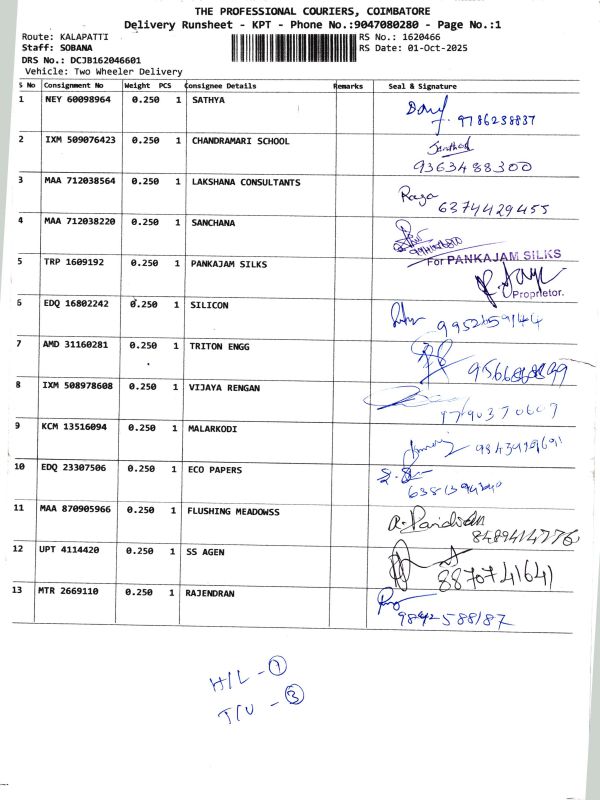 THE PROFESSIONAL COURIERS, COIMBATORE
Delivery Runsheet - KPT - Phone No.:9047080280 - Page No.:1
Route: KALAPATTI RS No.: 1620466
Staff: SOBANA RS Date: 01-Oct-2025
DRS No.: DCJB162046601
Vehicle: Two Wheeler Delivery
S No Consignment No Weight PCS Consignee Details Remarks Seal & Signature
1 NEY 60098964 0.250 1 SATHYA
9786238837
2 IXM 509076423 0.250 1 CHANDRAMARI SCHOOL
9363488300
3 MAA 712038564 0.250 1 LAKSHANA CONSULTANTS Raga
6374429455
4 MAA 712038220 0.250 1 SANCHANA
For PANKAJAM SILKS
5 TRP 1609192 0.250 1 PANKAJAM SILKS
Proprietor.
6 EDQ 16802242 0.250 1 SILICON
7 AMD 31160281 1 0.250 1 TRITON ENGG
8 IXM 508978608 0.250 1 VIJAYA RENGAN
9790370607
9 KCM 13516094 0.250 1 MALARKODI
10 EDQ 23307506 0.250 1 ECO PAPERS
11 MAA 870905966 0.250 1 FLUSHING MEADOWSS
8489414776
12 UPT 4114420 0.250 1 SS AGEN
8870741641
13 MTR 2669110 0.250 1 RAJENDRAN
9842588187
H/L - 7
I/U - 3